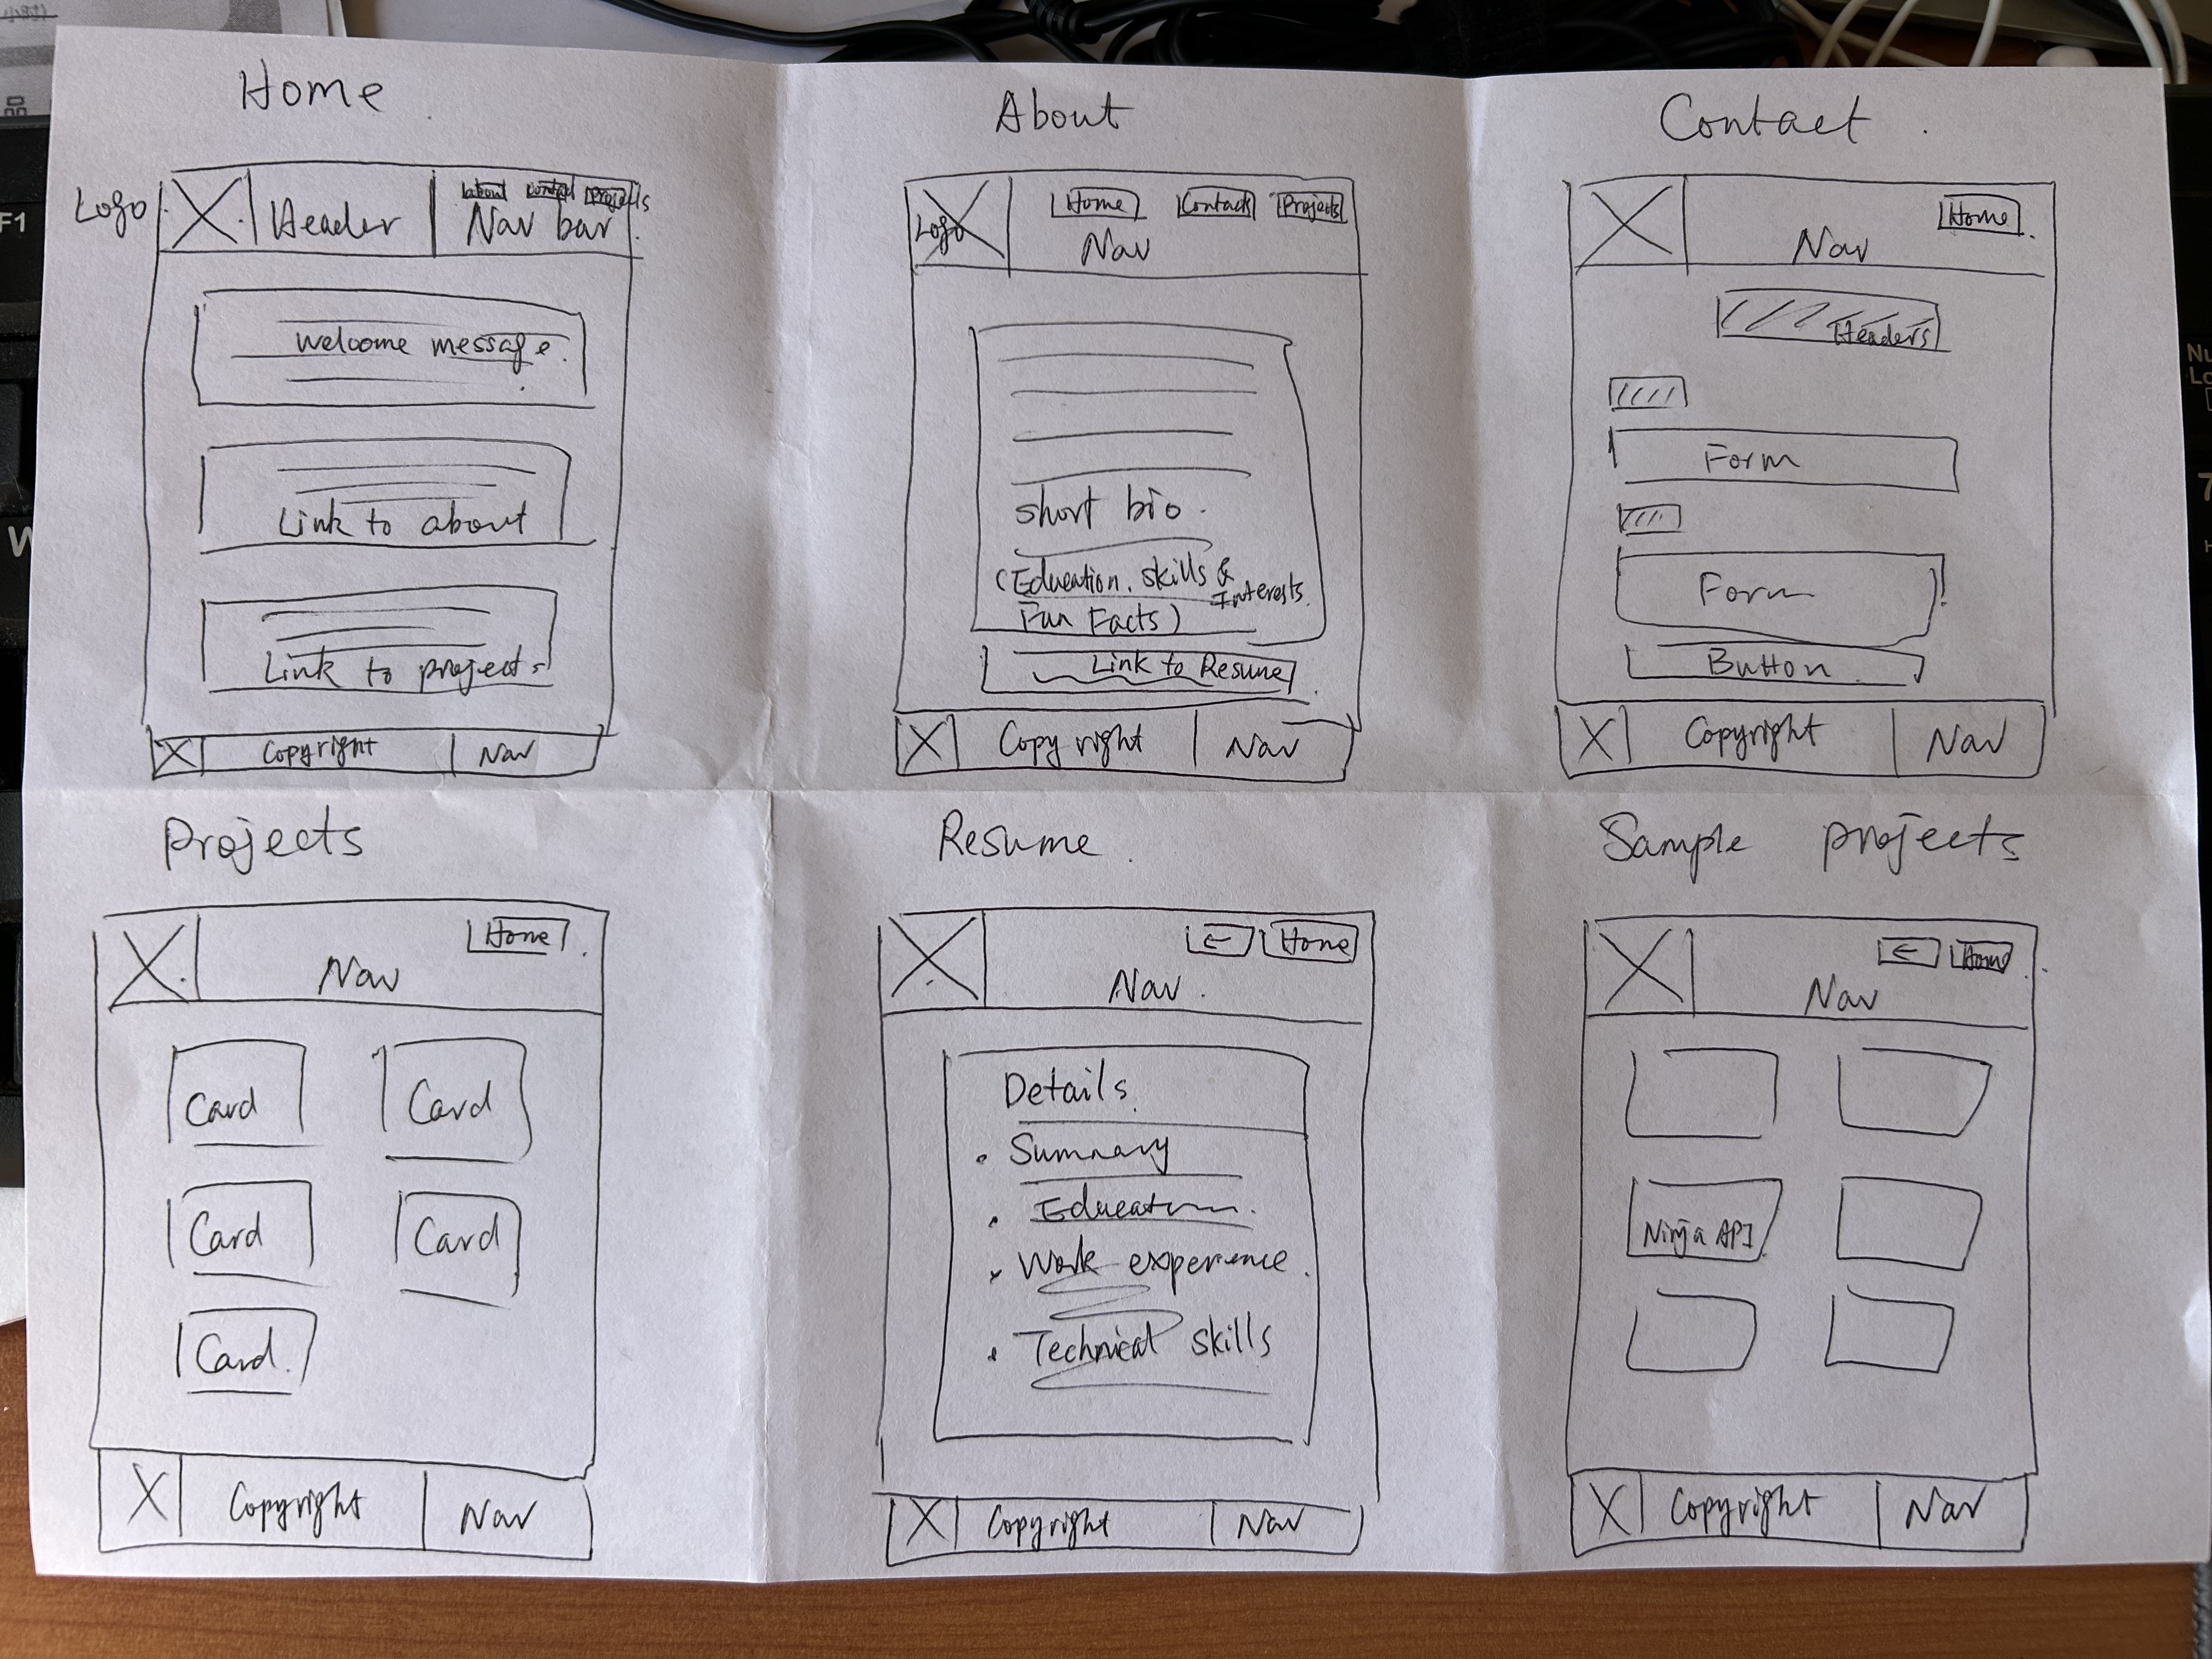 Home
Logo
about contact Projects
Header Nav bar
Welcome message.
Link to about
Link to projects
Copyright Nav
About
Logo Home Contacts Projects
Nav
short bio.
(Education. skills &
Interests
Fun Facts)
Link to Resume
Copy right Nav
Contact
Home
Nav
Headers
Form
Form
Button
Copyright Nav
Projects
Home
Nav
Card Card
Card Card
Card
Copyright Nav
Resume
← Home
Nav
Details
• Summary
• Education
• Work experience
• Technical skills
Copyright Nav
Sample projects
← Home
Nav
Ninja API
Copyright Nav
F1
W
7